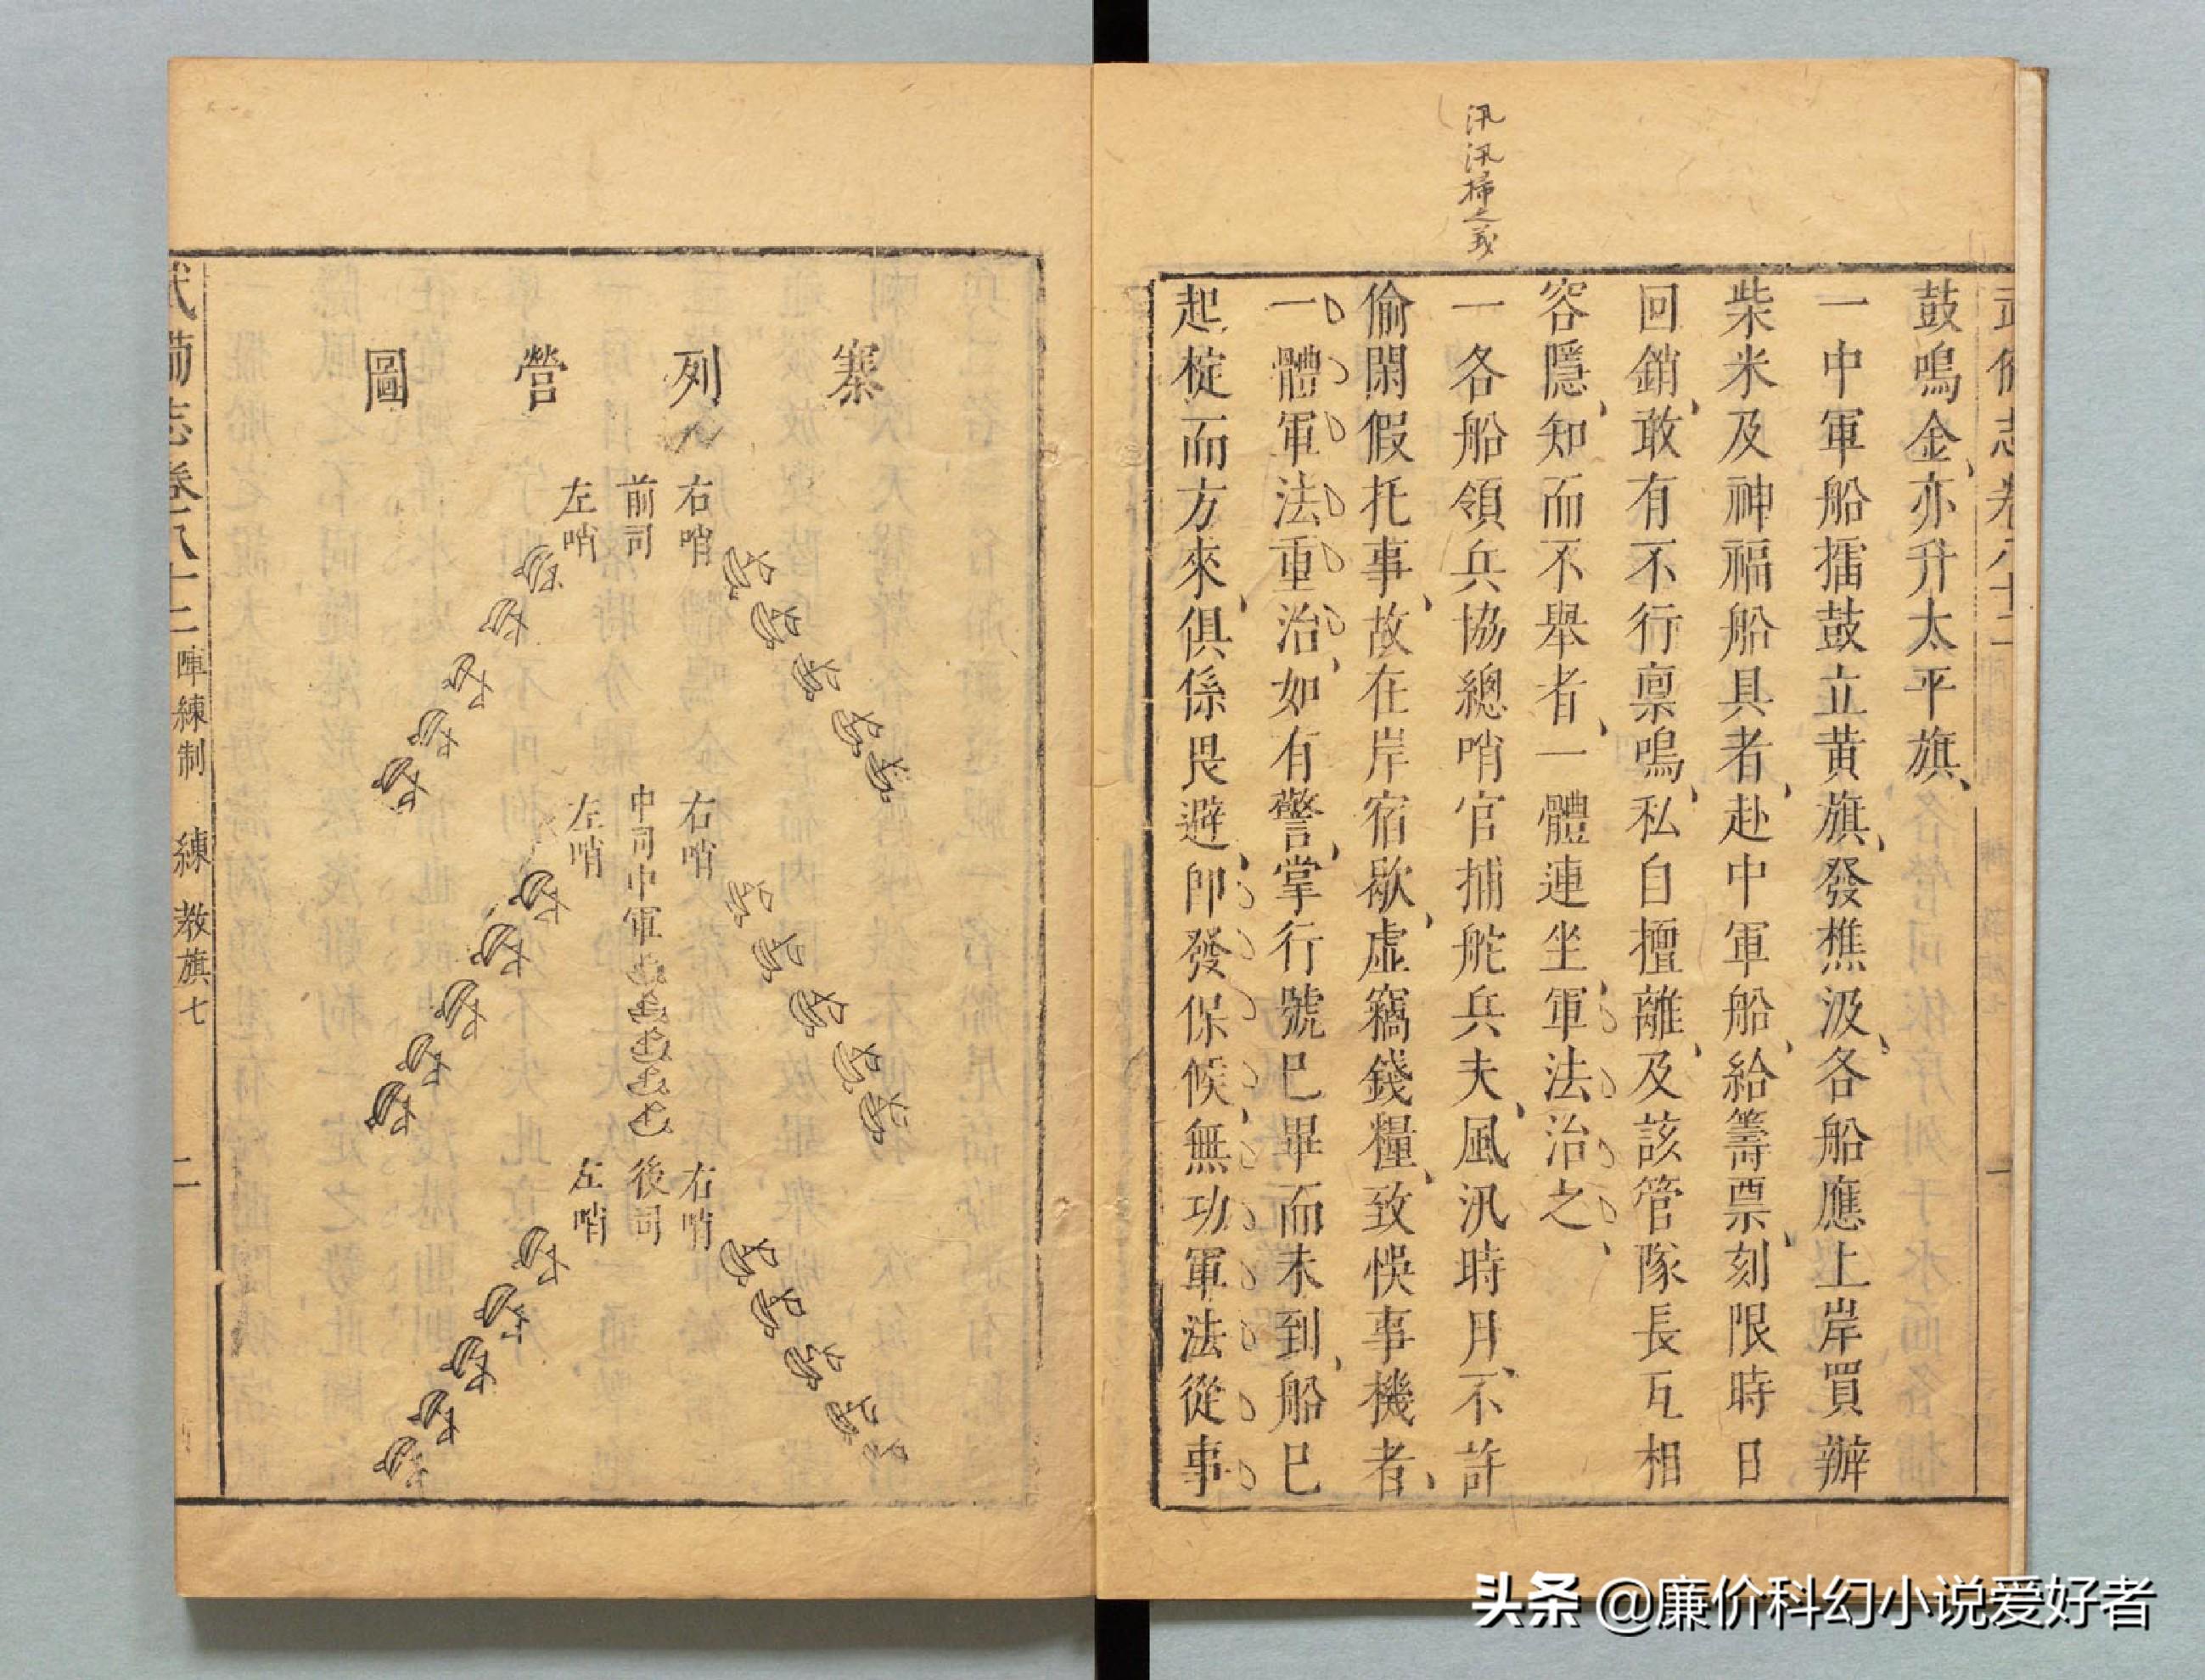 汛汛掃之義
武備志卷八十二
鼓鳴金、亦升太平旗、
一中軍船擂鼓立黃旗、發樵汲、各船應上岸買辦
柴米及神福船具者、赴中軍船、給籌票、刻限時日
回銷、敢有不行禀鳴、私自擅離、及該管隊長互相
容隱、知而不舉者、一體連坐、軍法治之、
一各船領兵協總哨官捕舵兵夫、風汛時月、不許
偷閑假托事、故在岸宿歇、虛竊錢糧、致悞事機者、
一體軍法重治、如有警、掌行號巳畢而未到、船巳
起椗而方來、俱係畏避、卽發保候、無功軍法從事
寨列營圖
右哨
前司
左哨
右哨
中司中軍
左哨
右哨
後司
左哨
武備志卷八十二 陣練制 練 教旗七 二
头条 @廉价科幻小说爱好者